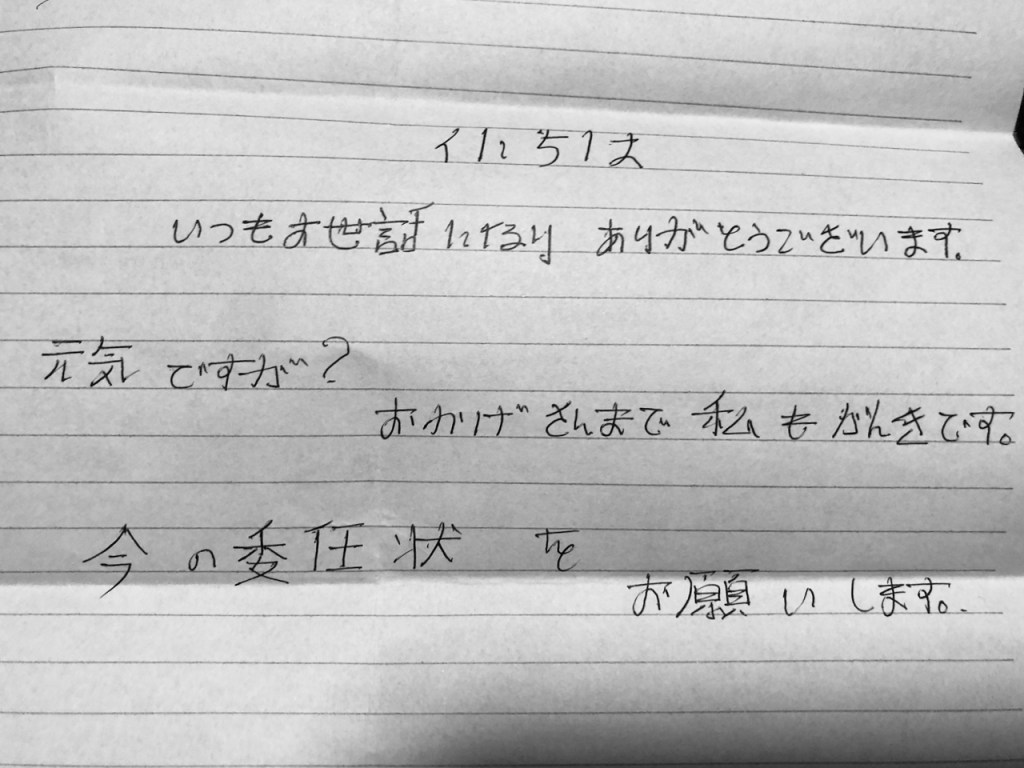 イにちは
いつもお世話になるり ありがとうございます。
元気ですが?
おかげさんまで 私も がんきです。
今の委任状を
お願いします。